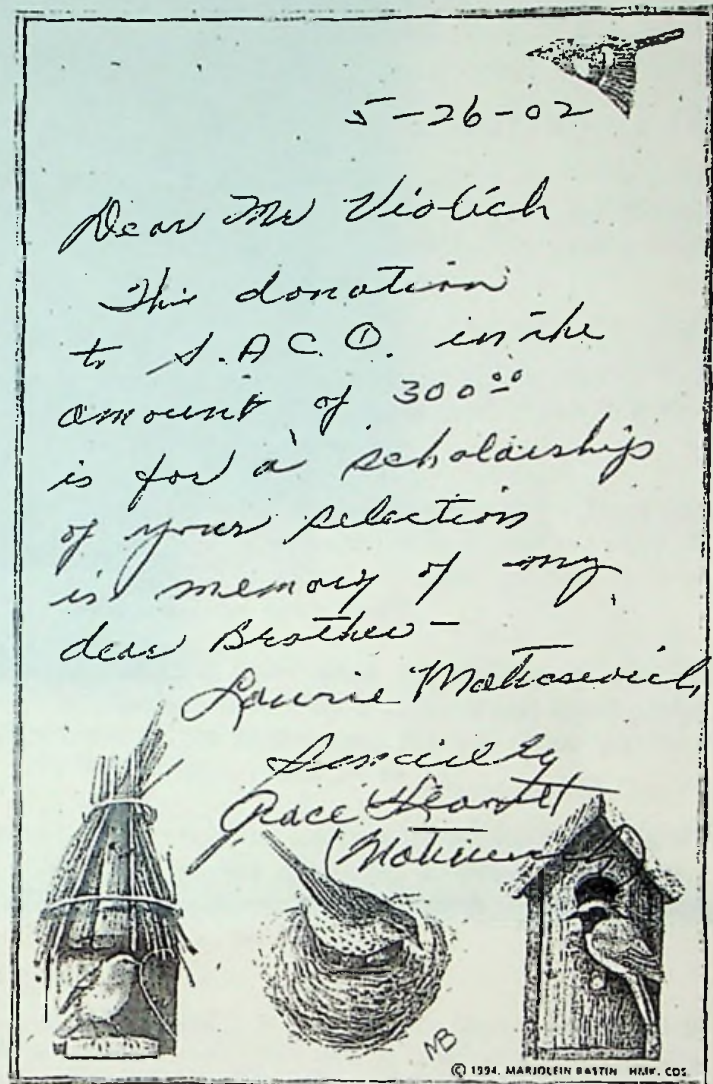 5-26-02
Dear Mr Violich
This donation
to S.A.C.O. in the
amount of 300⁰⁰
is for a scholarship
of your selection
in memory of my
dear Brother -
Laurie Matiasevich
Sincerely
Grace
MB
© 1994, MARJOLEIN BASTIN HMK. CDS.